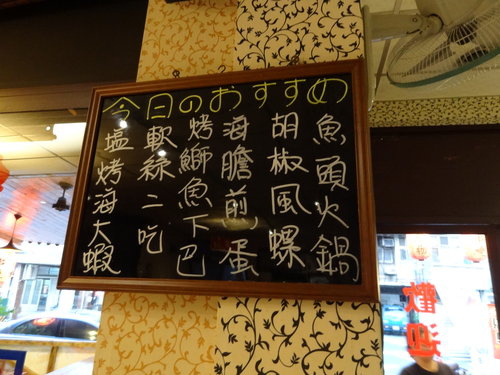 今日のおすすめ
魚頭火鍋
胡椒風螺
海膽煎蛋
烤鰤魚下巴
軟絲二吃
塩烤海大蝦
歡迎